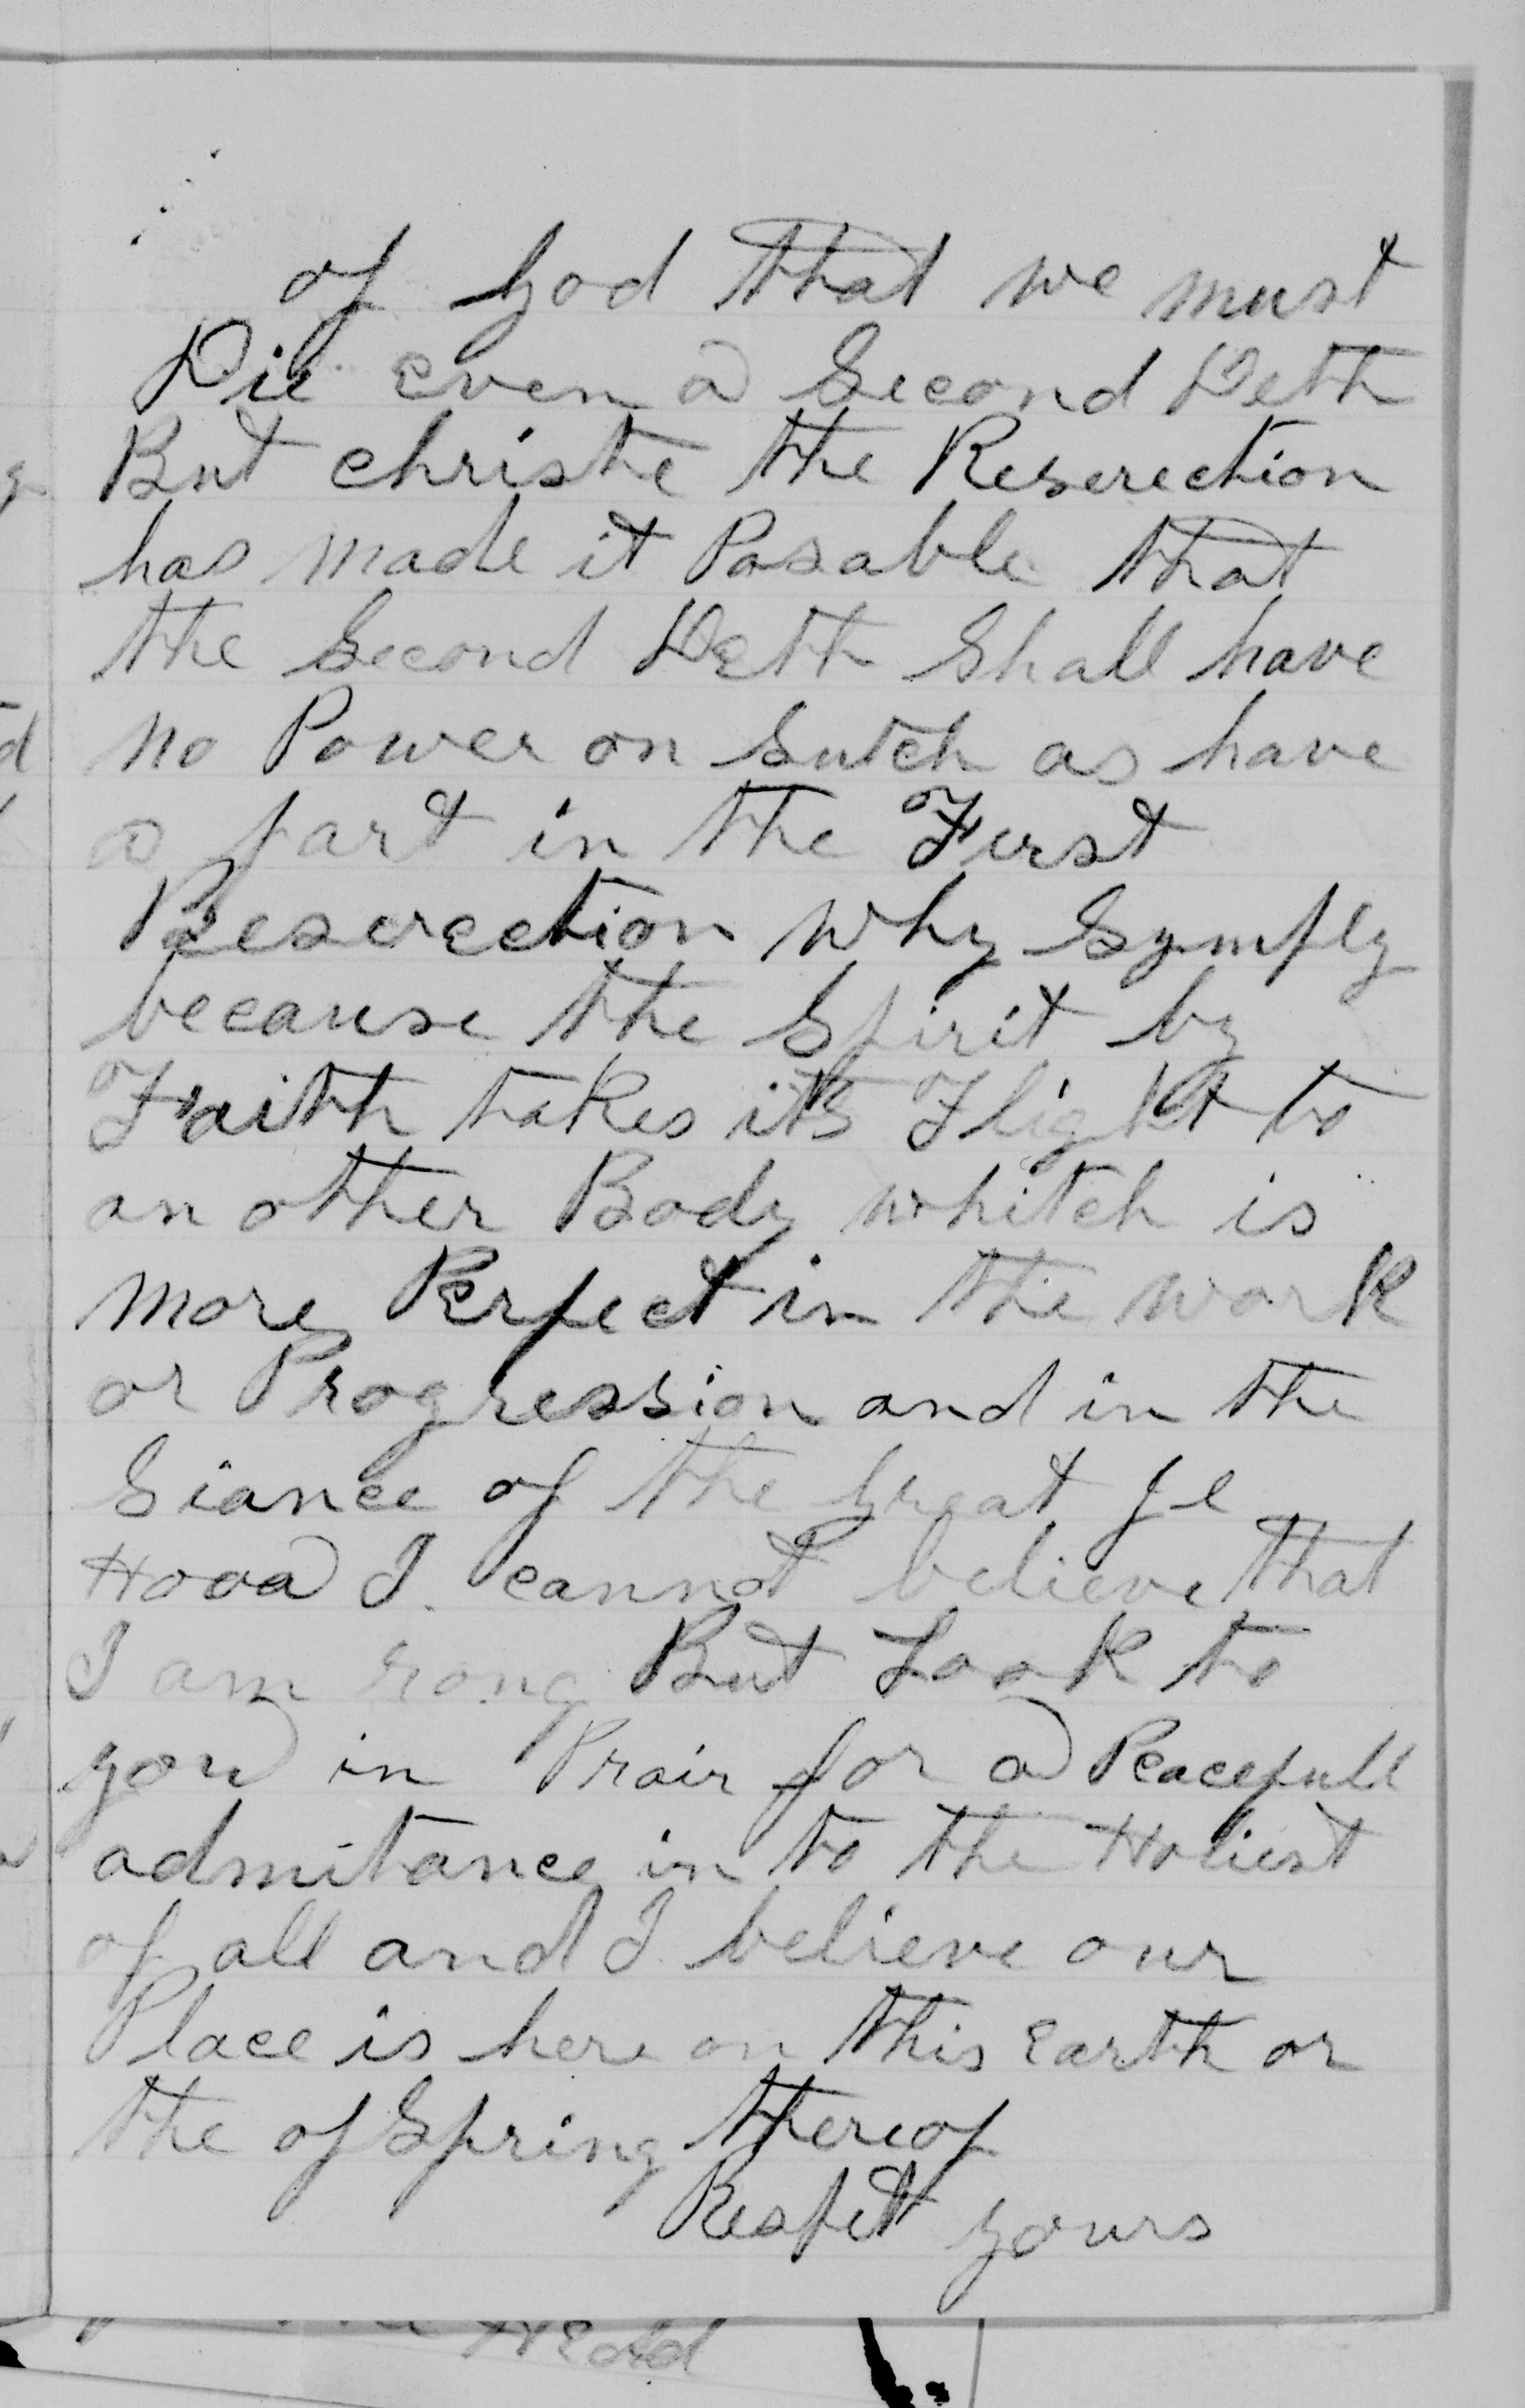 of God that we must
Die even a Second Deth
But christe the Reserection
has made it Posable that
the Second Deth Shall have
no Power on Sutch as have
a part in the First
Reserection why Symply
because the Spirit by
Faith takes its Flight to
an other Body whitch is
more Perfect in the work
or Progression and in the
Siance of the Great Je
Hova I cannot believe that
I am rong But Look to
you in Prair for a Peacefull
admitance in to the Holiest
of all and I believe our
Place is here on this Earth or
the ofSpring thereof
Respet yours